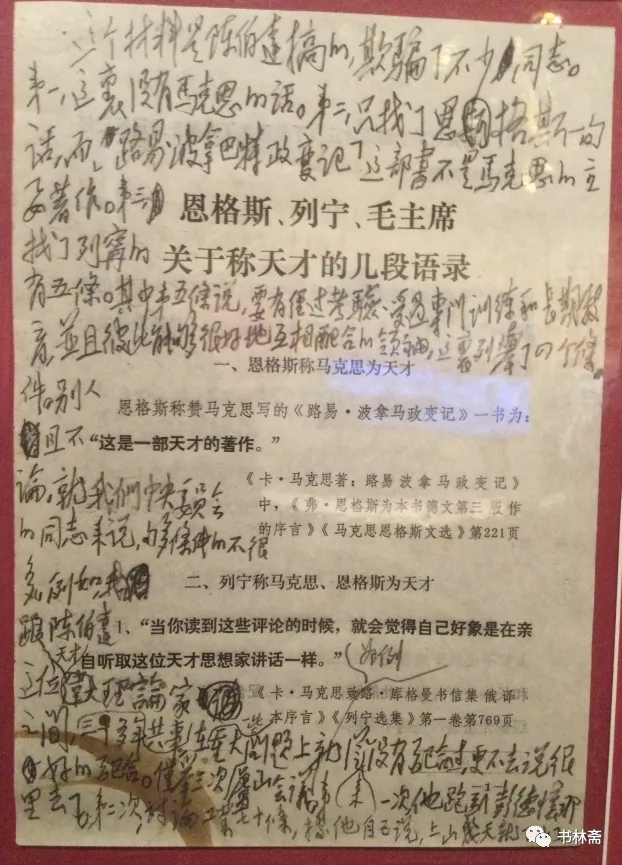 这个材料是陈伯達搞的,欺騙了不少同志。
第一,这裏没有馬克思的话。第二,只找了恩格斯的
话,而路易·波拿巴特政变记這部書不是馬克思的主
要著作。第三
恩格斯、列宁、毛主席
找了列甯的
关于称天才的几段语录
有五條。其中第五條说,要有经过考驗、受过專门训練和長期教
育,並且彼此能够很好地互相配合的领袖,这裏列舉了四个條
一、恩格斯称马克思为天才
件。别人
恩格斯称赞马克思写的《路易·波拿马政变记》一书为:
且不
“这是一部天才的著作。”
論,就我們中央委員会
《卡·马克思著:路易 波拿马政变记》
中,《弗·恩格斯为本书德文第三版作
的同志来说,够條件的不很
的序言》《马克思恩格斯文选》第221页
多。例如我
二、列宁称马克思、恩格斯为天才
跟陈伯達
1、“当你读到这些评论的时候,就会觉得自己好象是在亲
天才
自听取这位天才思想家讲话一样。”
为例
这位 理論家
《卡·马克思致路·库格曼书信集 俄译
本序言》《列宁选集》第一卷第769页
之间,三十多年共事,在一些重大问题上就從没有配合过,更不去说很
好的配合。僅舉三次廬山会議
第一次他跑到彭德懷那
里去了。第二次,讨论工業七十條,據他自己说,上山幾天就
书林斋